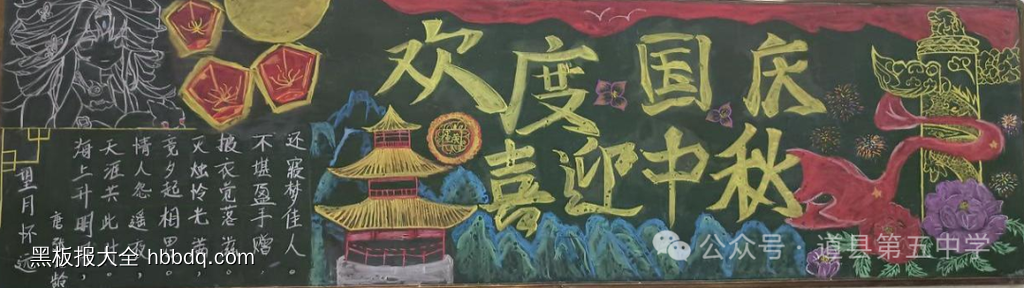 欢度国庆
喜迎中秋
望月怀远
唐 龄
海上升明
天涯共此时
情人怨遥夜，
竟夕起相思。
灭烛怜光满，
披衣觉露滋。
不堪盈手赠，
还寝梦佳人。
黑板报大全 hbbdq.com
公众号·道县第五中学